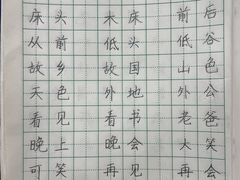 床头 未床 前后
从前 低头 低谷
故乡 故国 山色
天色 外地 外公
看见 看书 老爸
晚上 晚会 大笑
可笑 再见 再会